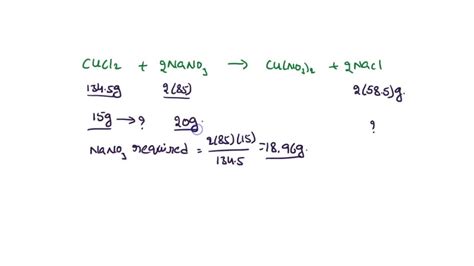 CuCl₂ + 2NaNO₃ → Cu(NO₃)₂ + 2NaCl
134.5g 2(85) 2(58.5)g.
15g → ? 20g. ?
NaNO₃ required = 2(85)(15)/134.5 = 18.96g.